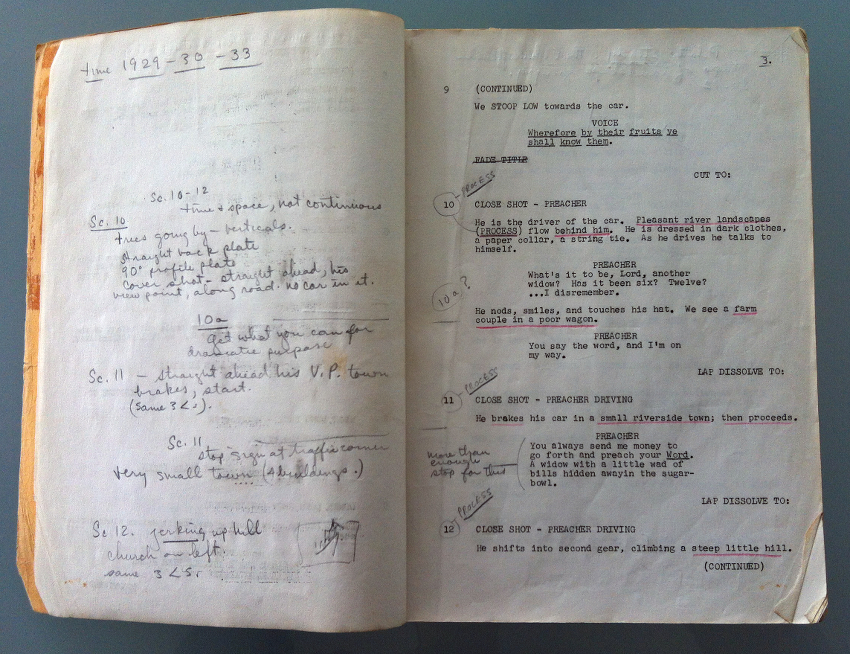 time 1929-30-33
Sc. 10-12
time & space, not continuous
Sc. 10
trees going by - verticals.
straight back plate
90° profile plate
cover shot - straight ahead, his
view point, along road. no car in it.
10a
get what you can for
dramatic purpose
Sc. 11 - straight ahead his V.P. town
brakes, start.
(same 3 <s).
Sc. 11
stop sign at traffic corner
very small town (4 buildings.)
Sc 12. jerking up hill
church on left.
same 3 <s.
3.
9 (CONTINUED)
We STOOP LOW towards the car.
VOICE
Wherefore by their fruits ye
shall know them.
FADE TITLE
CUT TO:
PROCESS
10 CLOSE SHOT - PREACHER
He is the driver of the car. Pleasant river landscapes
(PROCESS) flow behind him. He is dressed in dark clothes,
a paper collar, a string tie. As he drives he talks to
himself.
PREACHER
What's it to be, Lord, another
widow? Has it been six? Twelve?
...I disremember.
10a?
He nods, smiles, and touches his hat. We see a farm
couple in a poor wagon.
PREACHER
You say the word, and I'm on
my way.
LAP DISSOLVE TO:
PROCESS
11 CLOSE SHOT - PREACHER DRIVING
He brakes his car in a small riverside town; then proceeds.
PREACHER
You always send me money to
go forth and preach your Word.
A widow with a little wad of
bills hidden awayin the sugar-
bowl.
more than
enough
stop for this
LAP DISSOLVE TO:
PROCESS
12 CLOSE SHOT - PREACHER DRIVING
He shifts into second gear, climbing a steep little hill.
(CONTINUED)